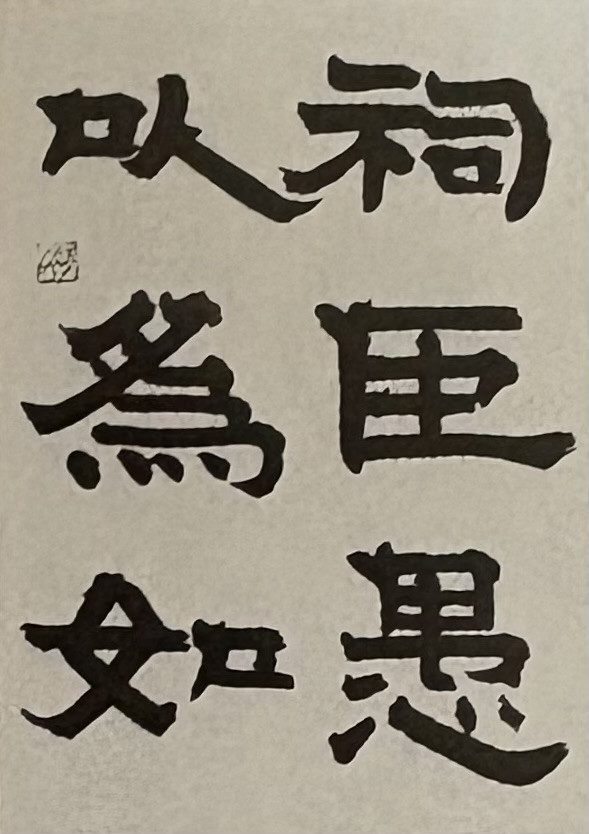 祠臣愚
以為如